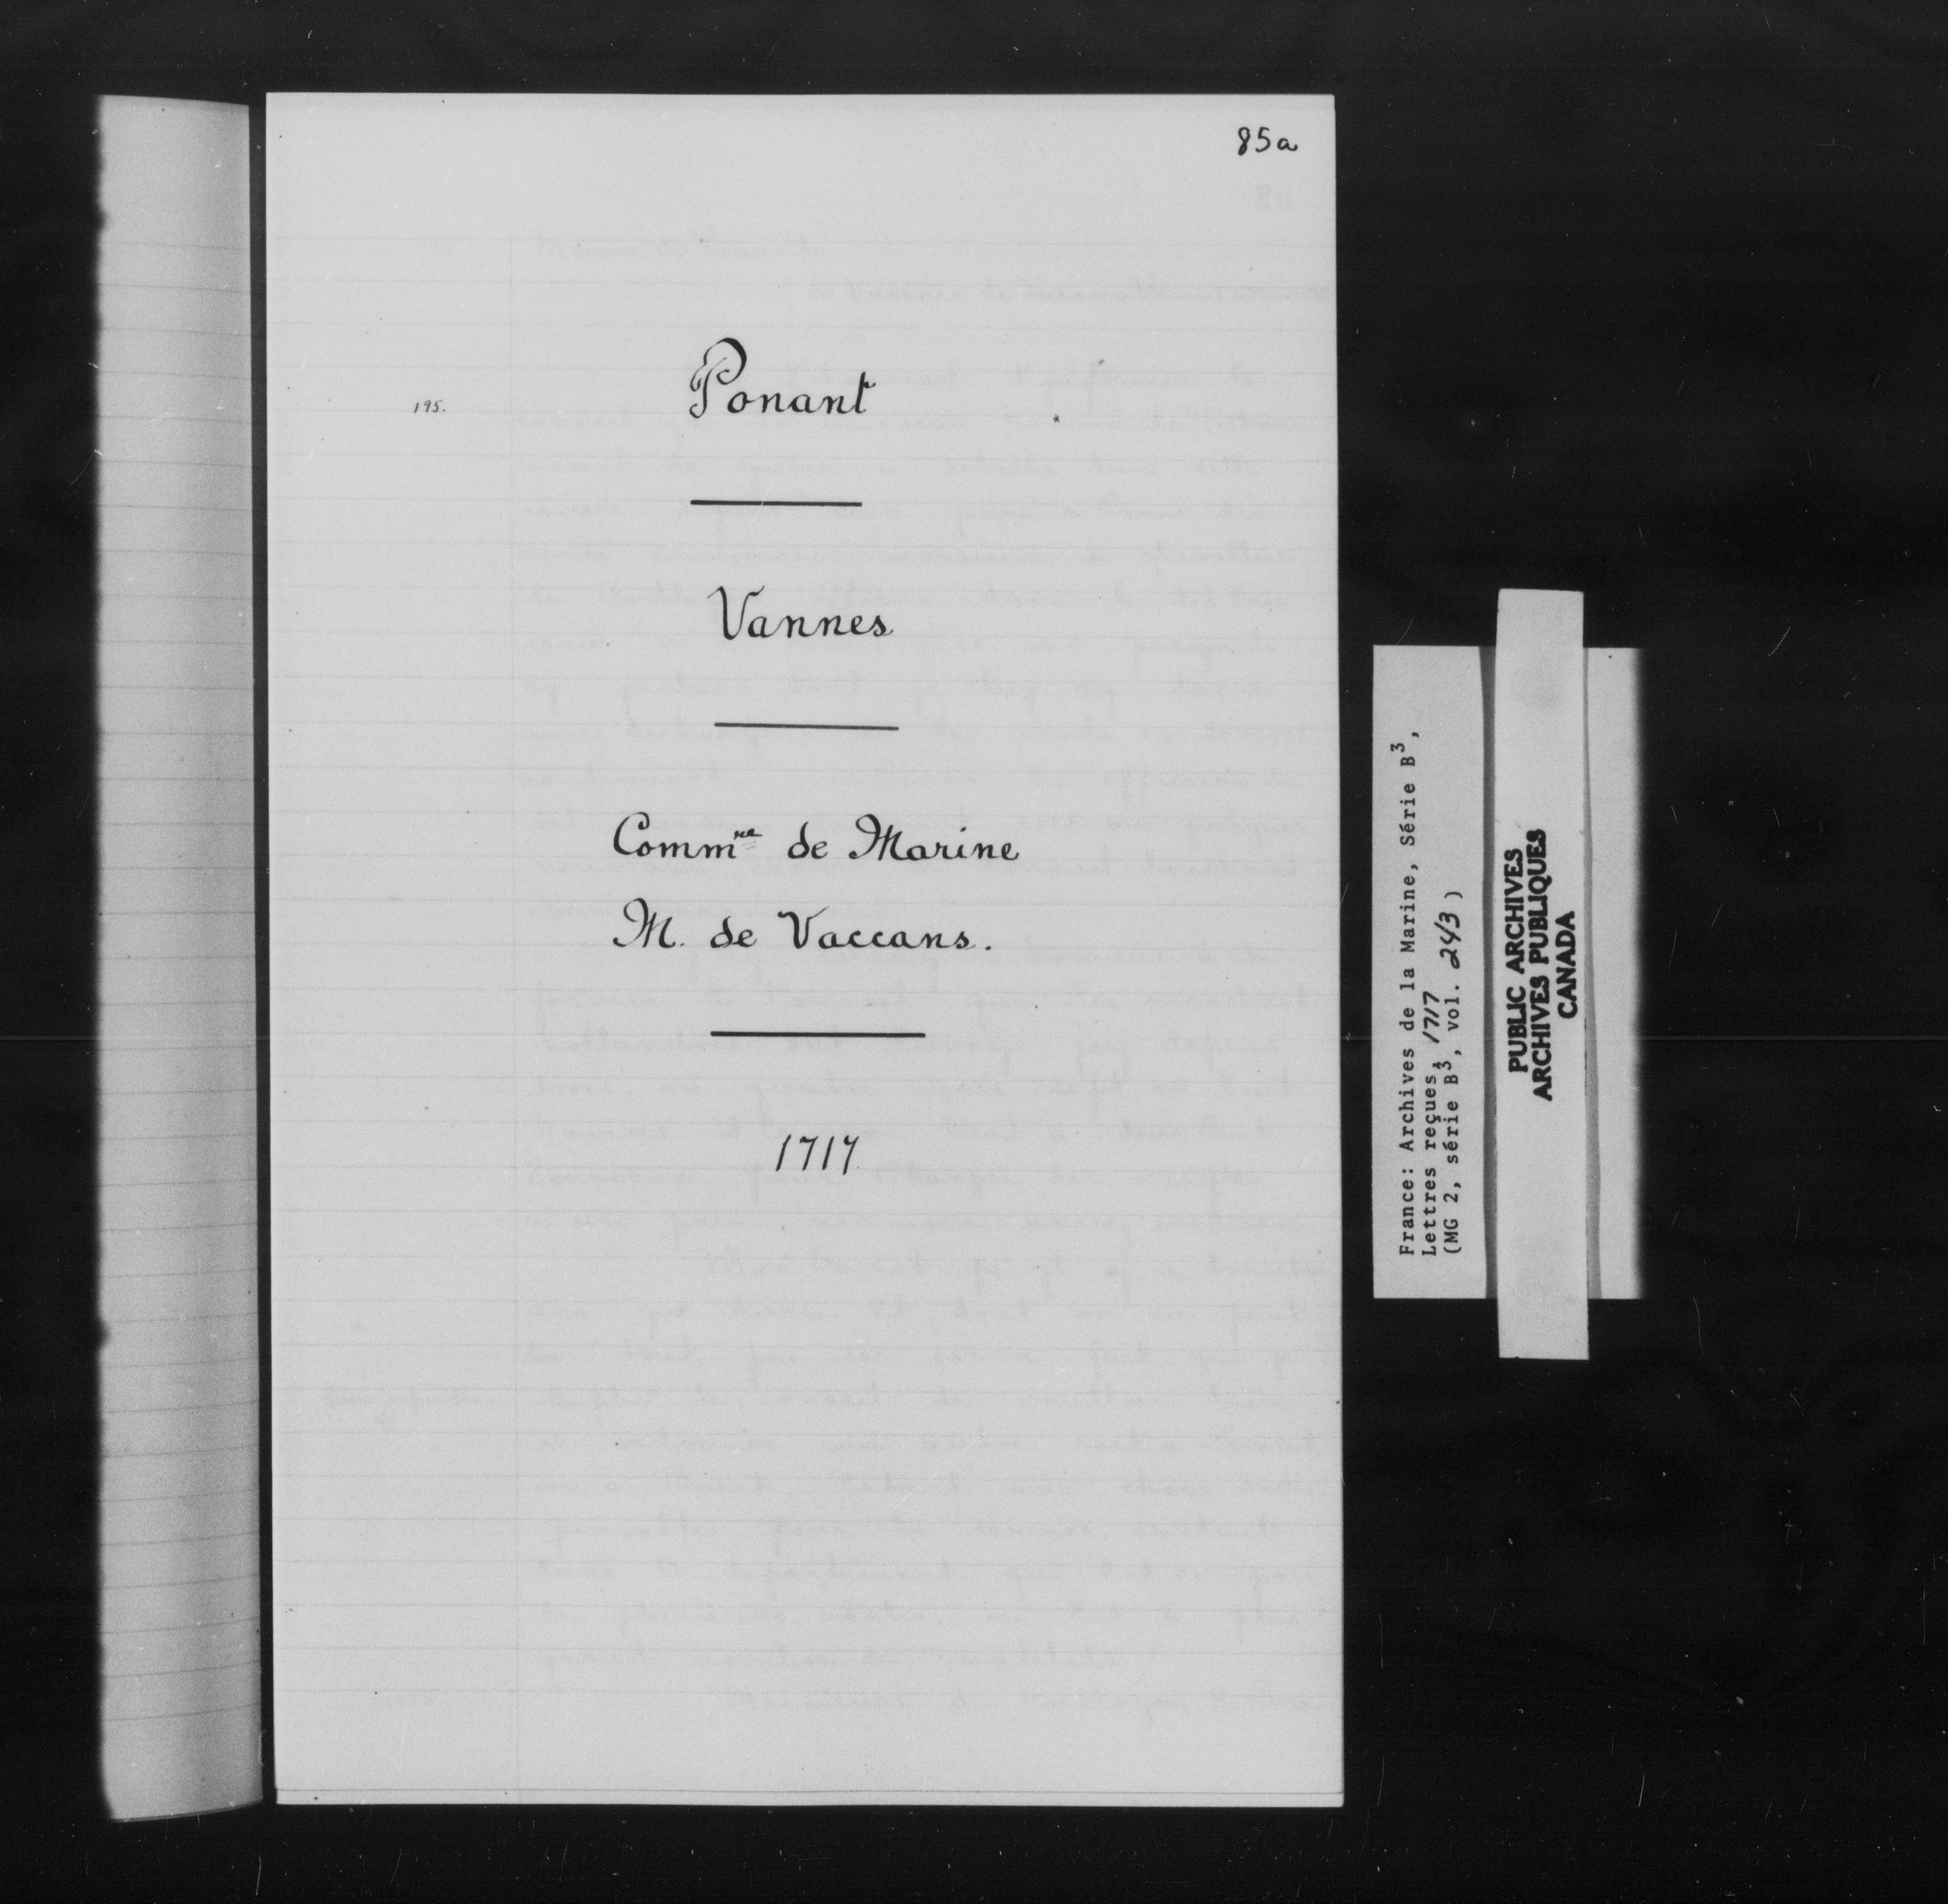 85a
195.
Ponant
Vannes
Comm^re de Marine
M. de Vaccans.
1717
France: Archives de la Marine, Série B³,
Lettres reçues, 1717
(MG 2, série B³, vol. 243)
PUBLIC ARCHIVES
ARCHIVES PUBLIQUES
CANADA